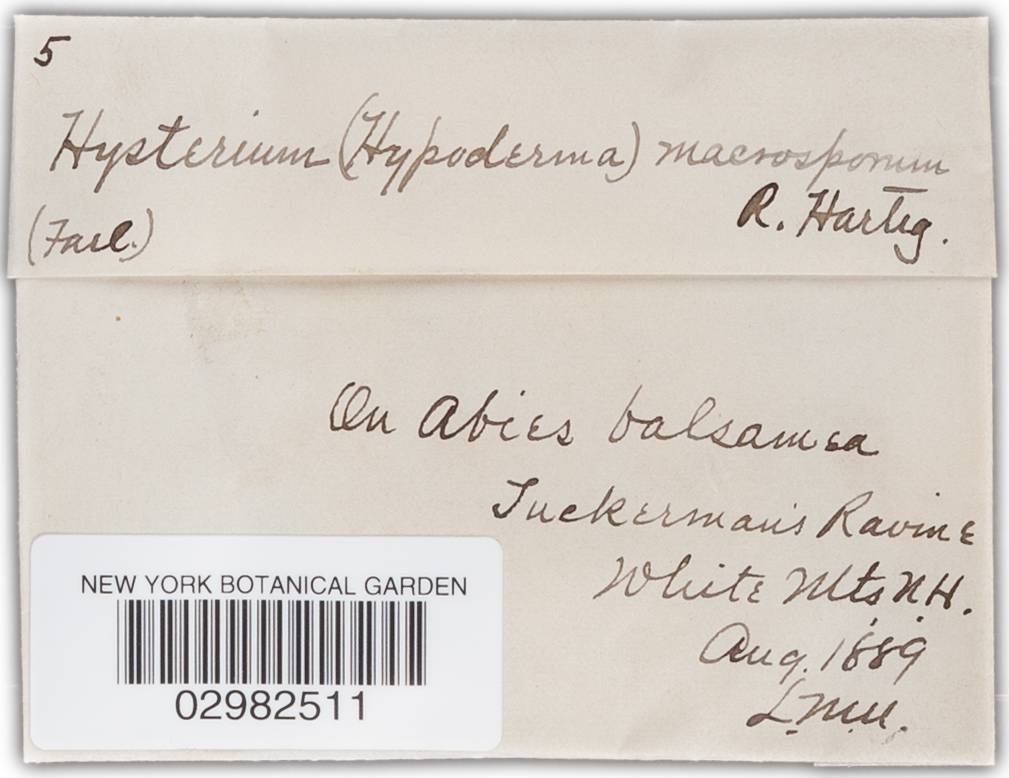 5
Hysterium (Hypoderma) macrosporum
R. Hartig.
(Farl.)
On Abies balsamea
Tuckerman's Ravine
White Mts N.H.
Aug. 1889
L.M.U.
NEW YORK BOTANICAL GARDEN
02982511